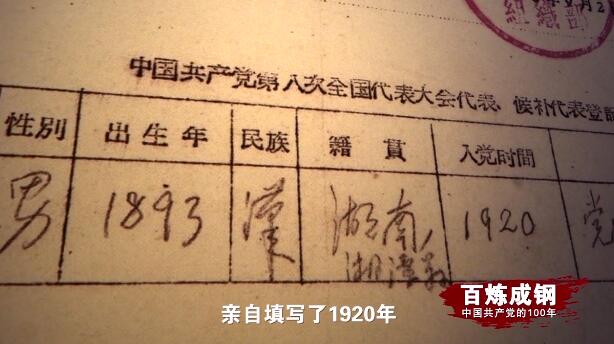 组织部
中国共产党第八次全国代表大会代表、候补代表登記
性别 出生年 民族 籍贯 入党时間
男 1893 漢 湖南 1920 党
湘潭
百炼成钢
中国共产党的100年
亲自填写了1920年